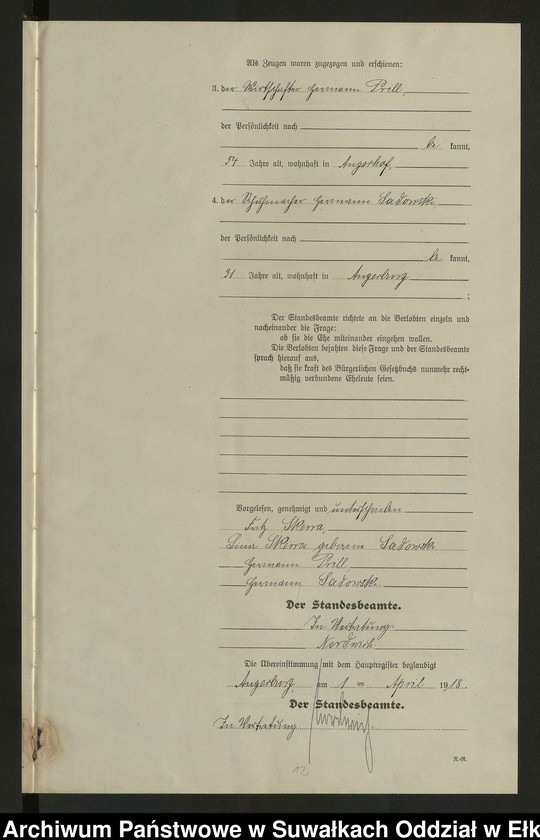 Als Zeugen waren zugezogen und erschienen:
3. der Wirtschafter Hermann Prill,
der Persönlichkeit nach
be kannt,
54 Jahre alt, wohnhaft in Angerhof,
4. der Schuhmacher Hermann Sadowski,
der Persönlichkeit nach
be kannt,
31 Jahre alt, wohnhaft in Angerburg
;
Der Standesbeamte richtete an die Verlobten einzeln und
nacheinander die Frage:
ob sie die Ehe miteinander eingehen wollen.
Die Verlobten bejahten diese Frage und der Standesbeamte
sprach hierauf aus,
daß sie kraft des Bürgerlichen Gesetzbuchs nunmehr recht-
mäßig verbundene Eheleute seien.
Vorgelesen, genehmigt und unterschrieben
Fritz Skerra,
Skerra geborene Sadowski
Hermann Prill
Hermann Sadowski.
Der Standesbeamte.
In Vertretung
Die Übereinstimmung mit dem Hauptregister beglaubigt
Angerburg, am 1 ten April 1918.
Der Standesbeamte.
In Vertretung
R.-R.
12
Archiwum Państwowe w Suwałkach Oddział w Ełku